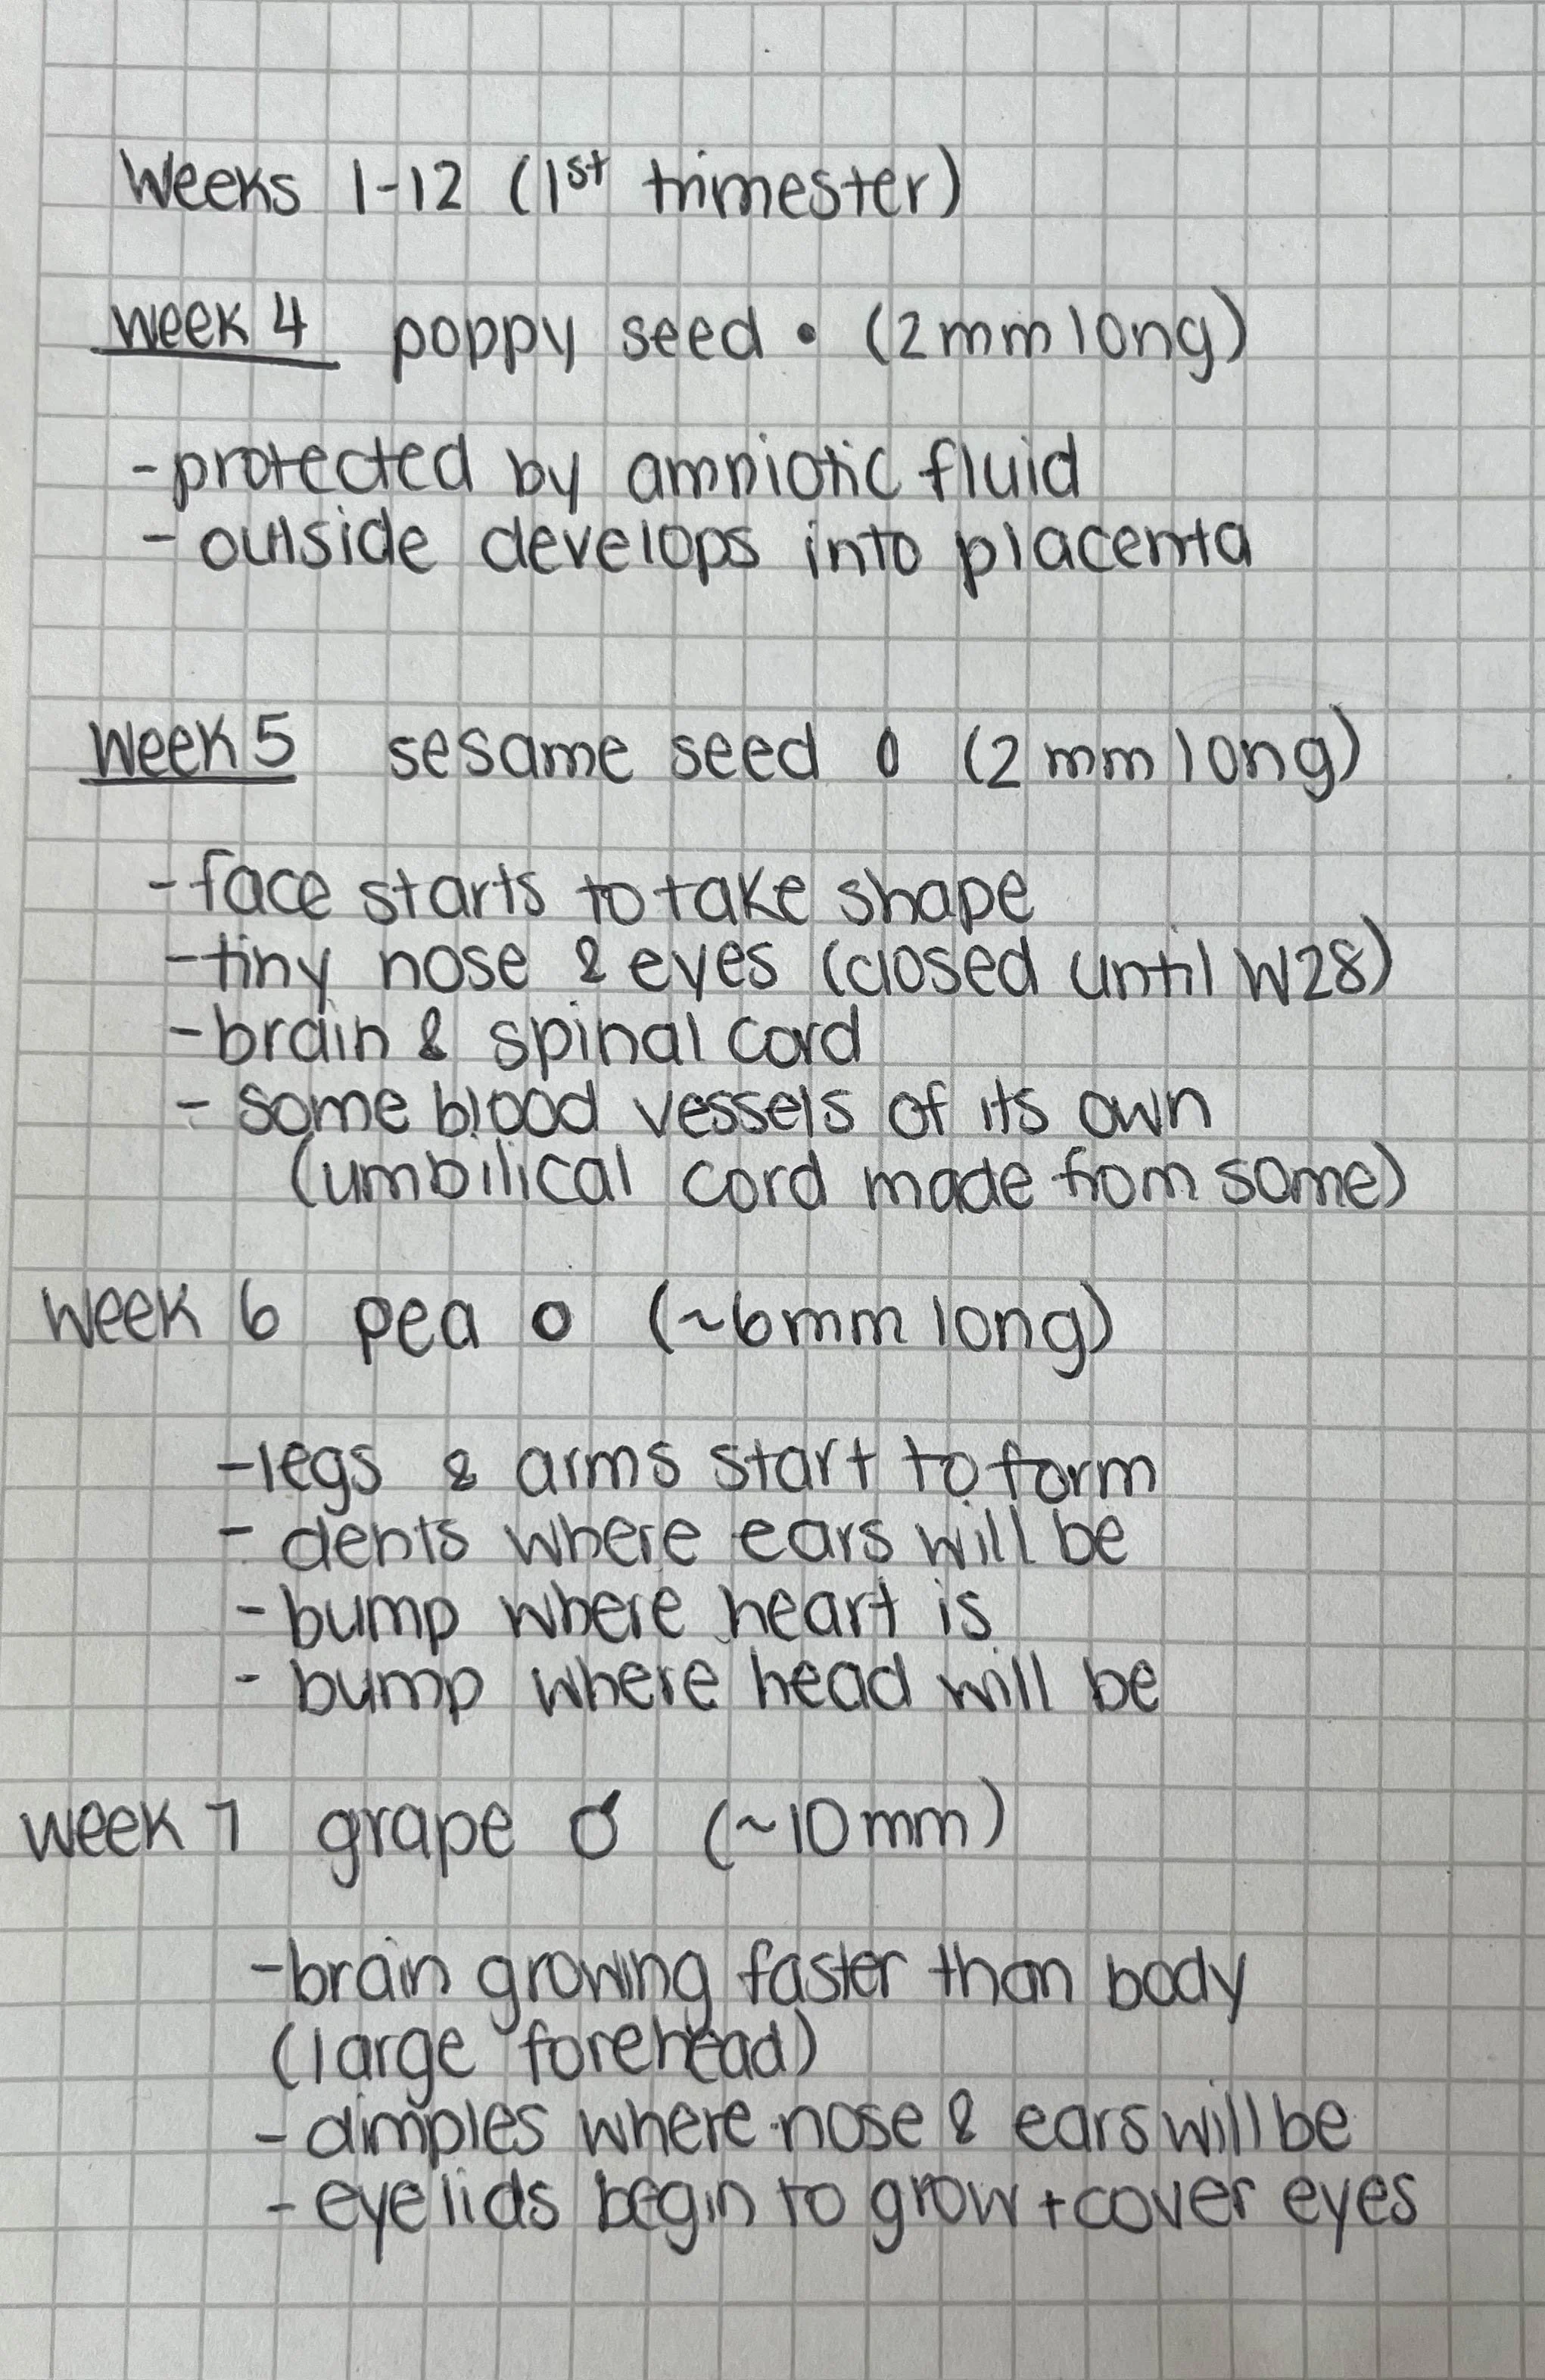 Weeks 1-12 (1st trimester)
Week 4 poppy seed • (2mm long)
- protected by amniotic fluid
- outside develops into placenta
Week 5 sesame seed (2 mm long)
- face starts to take shape
- tiny nose & eyes (closed until W28)
- brain & spinal cord
- some blood vessels of its own
(umbilical cord made from some)
Week 6 pea (~6mm long)
- legs & arms start to form
- dents where ears will be
- bump where heart is
- bump where head will be
Week 7 grape (~10mm)
- brain growing faster than body
(large forehead)
- dimples where nose & ears will be
- eyelids begin to grow + cover eyes